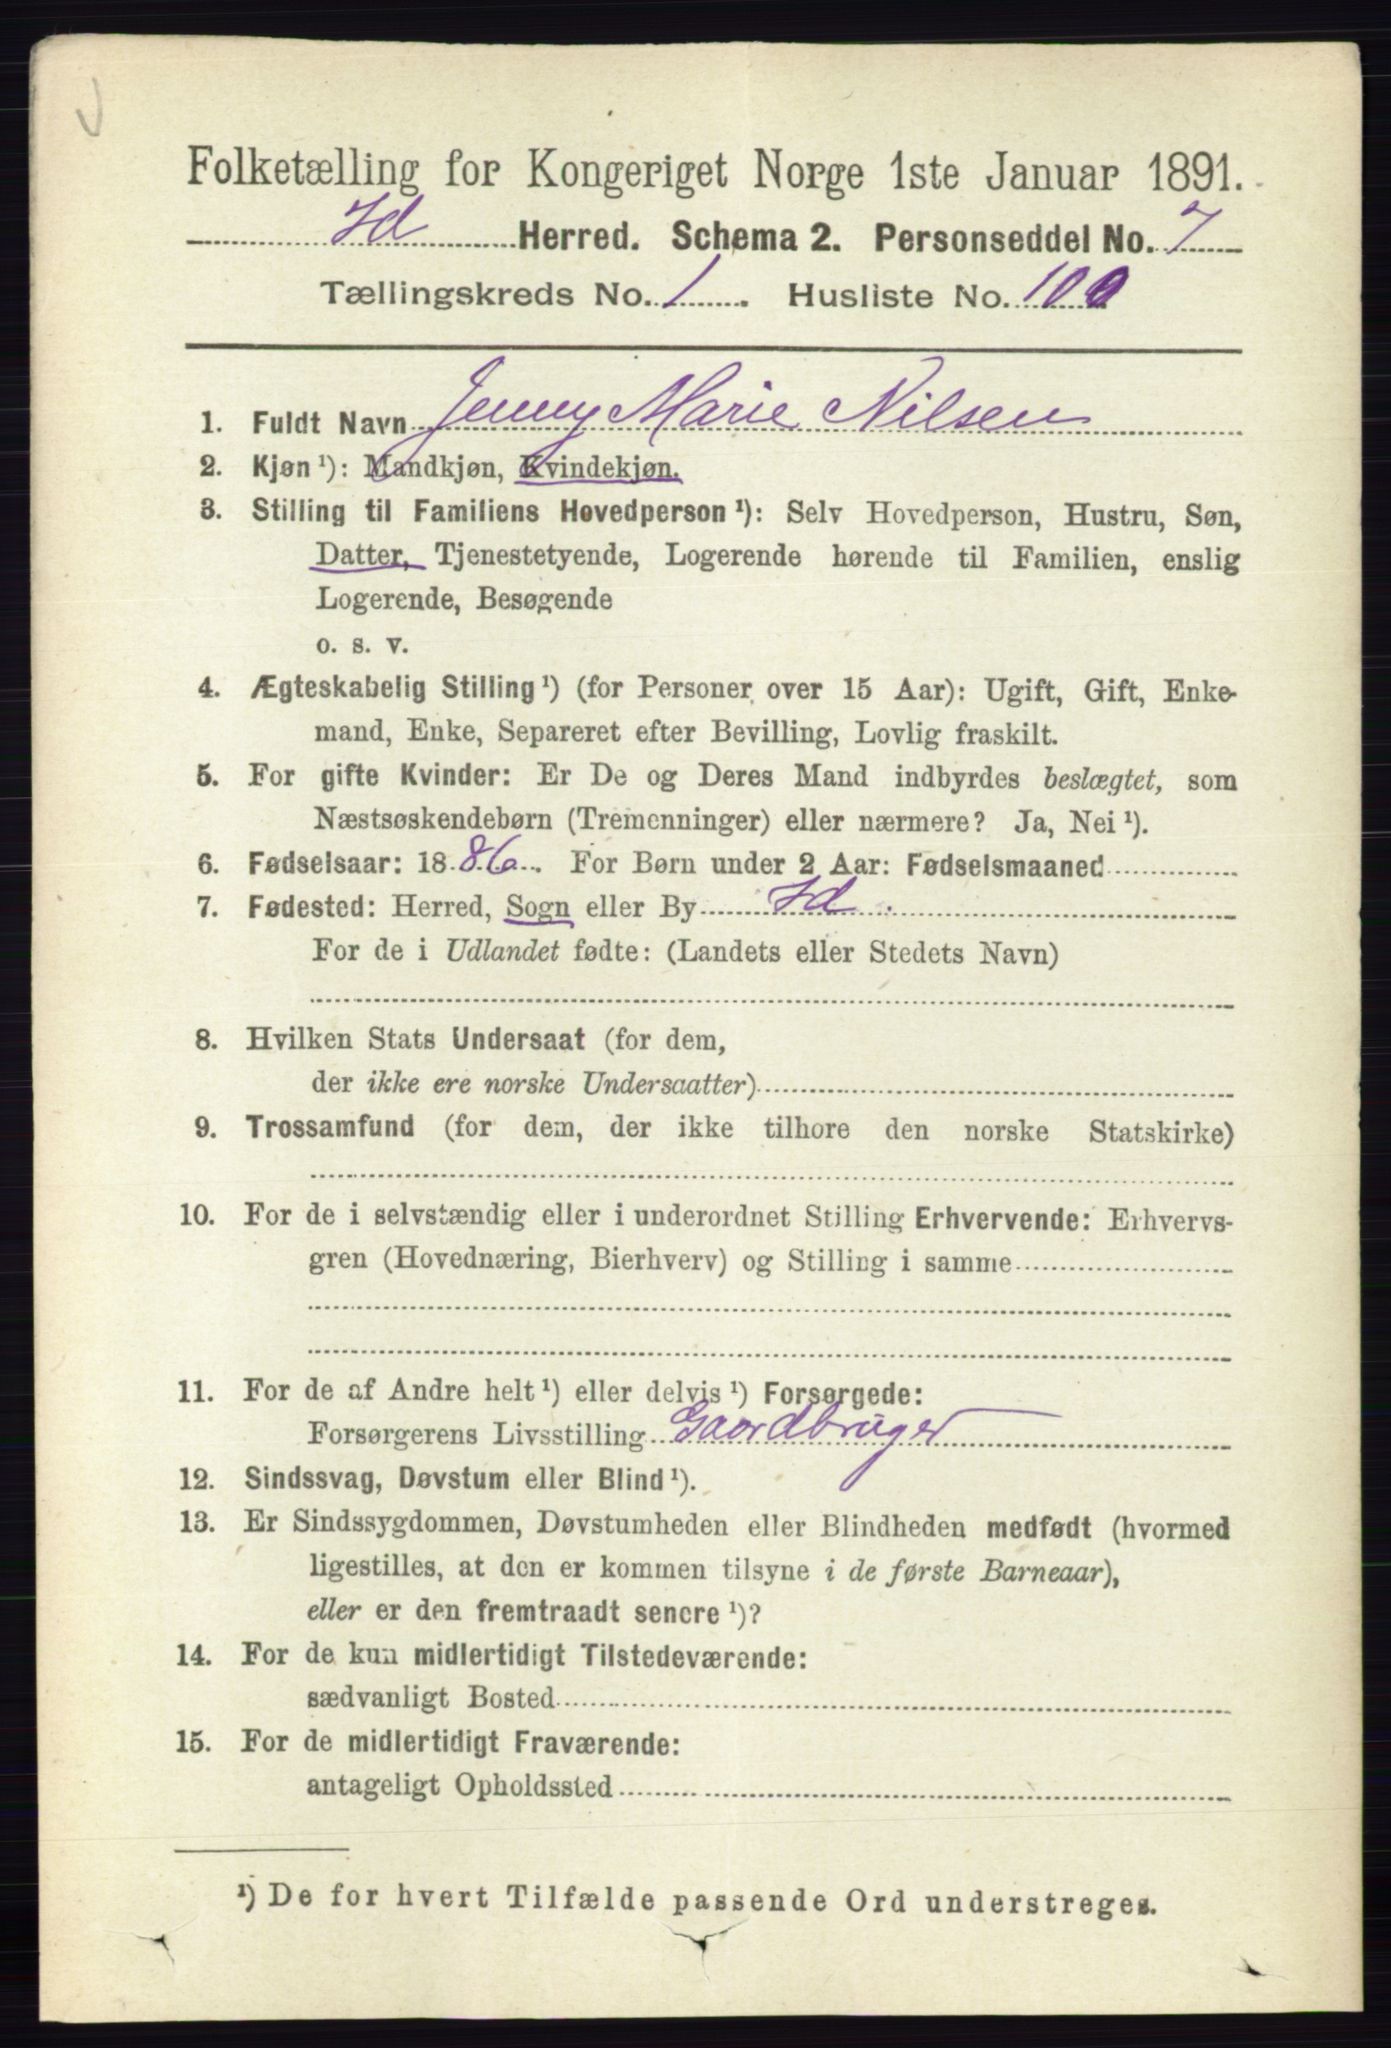 Folketælling for Kongeriget Norge 1ste Januar 1891.
Id Herred. Schema 2. Personseddel No. 7
Tællingskreds No. 1. Husliste No. 100
1. Fuldt Navn Jenny Marie Nilsen
2. Kjøn ¹): Mandkjøn, Kvindekjøn.
3. Stilling til Familiens Hovedperson ¹): Selv Hovedperson, Hustru, Søn,
Datter, Tjenestetyende, Logerende hørende til Familien, enslig
Logerende, Besøgende
o. s. v.
4. Ægteskabelig Stilling ¹) (for Personer over 15 Aar): Ugift, Gift, Enke-
mand, Enke, Separeret efter Bevilling, Lovlig fraskilt.
5. For gifte Kvinder: Er De og Deres Mand indbyrdes beslægtet, som
Næstsøskendebørn (Tremenninger) eller nærmere? Ja, Nei ¹).
6. Fødselsaar: 1886. For Børn under 2 Aar: Fødselsmaaned
7. Fødested: Herred, Sogn eller By Id.
For de i Udlandet fødte: (Landets eller Stedets Navn)
8. Hvilken Stats Undersaat (for dem,
der ikke ere norske Undersaatter)
9. Trossamfund (for dem, der ikke tilhore den norske Statskirke)
10. For de i selvstændig eller i underordnet Stilling Erhvervende: Erhvervs-
gren (Hovednæring, Bierhverv) og Stilling i samme
11. For de af Andre helt ¹) eller delvis ¹) Forsørgede:
Forsørgerens Livsstilling Gaardbruger
12. Sindssvag, Døvstum eller Blind ¹).
13. Er Sindssygdommen, Døvstumheden eller Blindheden medfødt (hvormed
ligestilles, at den er kommen tilsyne i de første Barneaar),
eller er den fremtraadt senere ¹)?
14. For de kun midlertidigt Tilstedeværende:
sædvanligt Bosted
15. For de midlertidigt Fraværende:
antageligt Opholdssted
¹) De for hvert Tilfælde passende Ord understreges.